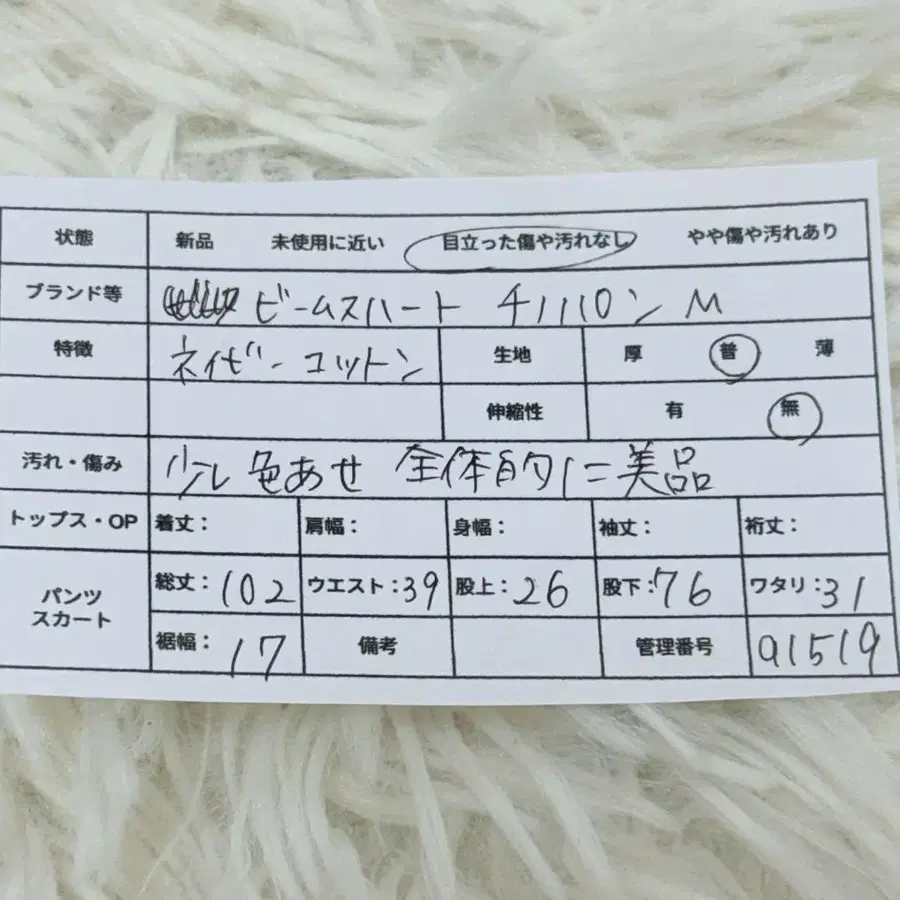 状態 新品 未使用に近い 目立った傷や汚れなし やや傷や汚れあり
ブランド等 ビームスハート チノパン M
特徴 ネイビー コットン 生地 厚 普 薄
伸縮性 有 無
汚れ・傷み 少し色あせ 全体的に美品
トップス・OP 着丈: 肩幅: 身幅: 袖丈: 裄丈:
パンツ スカート 総丈:102 ウエスト:39 股上:26 股下:76 ワタリ:31
裾幅:17 備考 管理番号 a1519